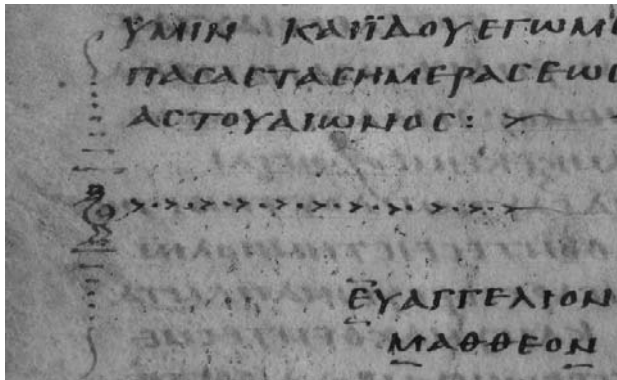 ΥΜΙΝ ΚΑΙΪΔΟΥΕΓΩΜΕ
ΠΑϹΑϹΤΑϹΗΜΕΡΑϹΕΩϹ
ΑϹΤΟΥΑΙΩΝΟϹ:
ΕΥΑΓΓΕΛΙΟΝ
ΜΑΘΘΕΟΝ